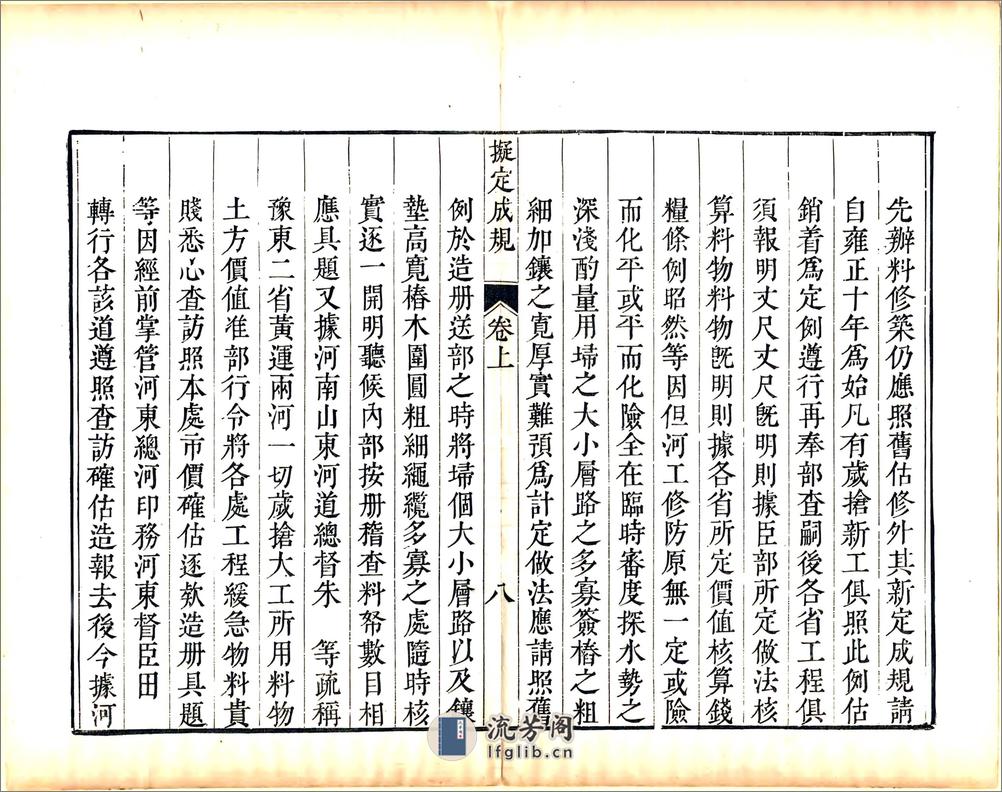 先辦料修築仍應照舊估修外其新定成規請
自雍正十年爲始凡有歲搶新工俱照此例估
銷着爲定例遵行再奉部查嗣後各省工程俱
須報明丈尺丈尺旣明則據臣部所定做法核
算料物料物旣明則據各省所定價值核算錢
糧條例昭然等因但河工修防原無一定或險
而化平或平而化險全在臨時審度探水勢之
深淺酌量用埽之大小層路之多寡簽樁之粗
細加鑲之寬厚實難預爲計定做法應請照舊
擬定成規 卷上 八
例於造册送部之時將埽個大小層路以及鑲
墊高寬樁木圍圓粗細繩纜多寡之處隨時核
實逐一開明聽候內部按册稽查料帑數目相
應具題又據河南山東河道總督朱 等疏稱
豫東二省黃運兩河一切歲搶大工所用料物
土方價值准部行令將各處工程緩急物料貴
賤悉心查訪照本處市價確估逐欵造册具題
等因經前掌管河東總河印務河東督臣田
轉行各該道遵照查訪確估造報去後今據河
流芳阁
lfglib.cn